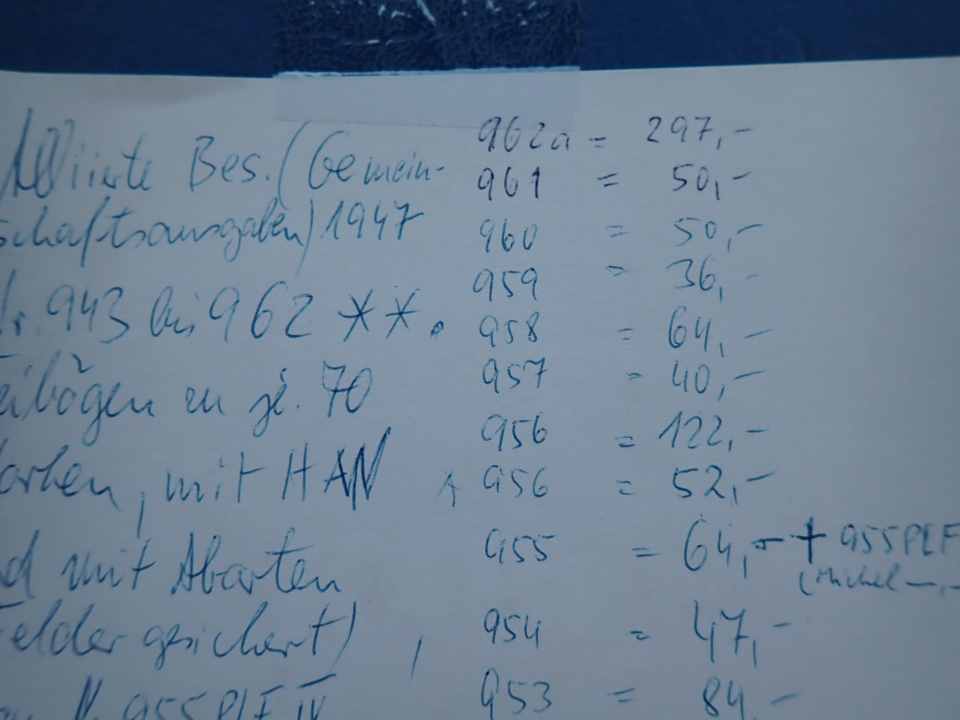 Alliierte Bes. (Gemein-
schaftsausgaben) 1947
Nr. 943 bis 962 **.
zu je. 70
mit HAN
mit Abarten
Felder gesichert),
955 PLF IV
962a = 297,-
961 = 50,-
960 = 50,-
959 = 36,-
958 = 64,-
957 = 40,-
956 = 122,-
956 = 52,-
955 = 64,- + 955 PLF
(Michel -,-
954 = 47,-
953 = 84,-